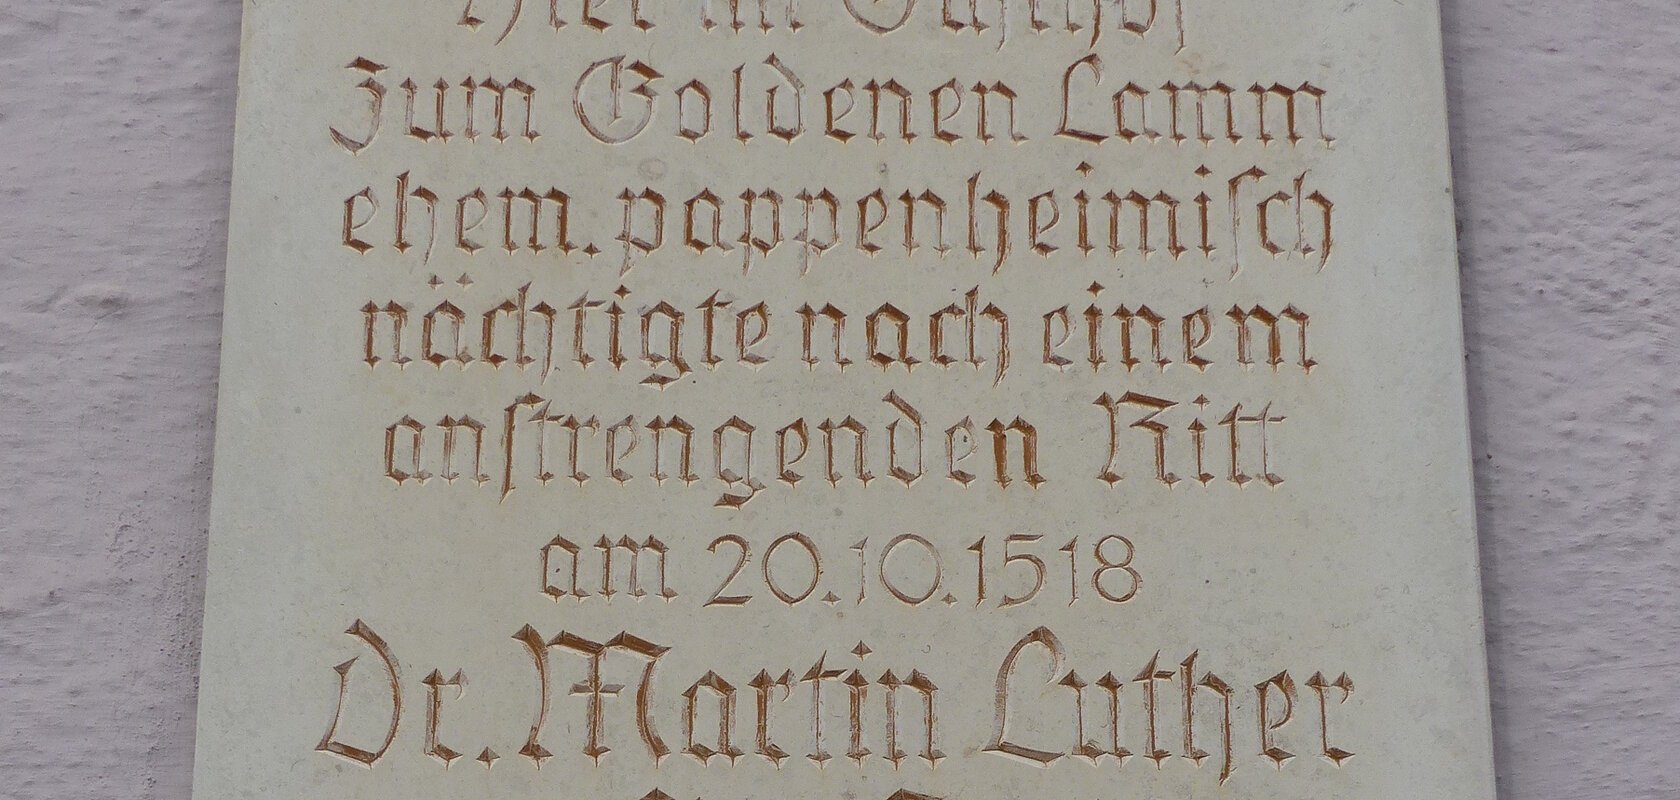 Hier im Gasthof
Zum Goldenen Lamm
ehem. pappenheimiſch
nächtigte nach einem
anſtrengenden Ritt
am 20.10.1518
Dr. Martin Luther